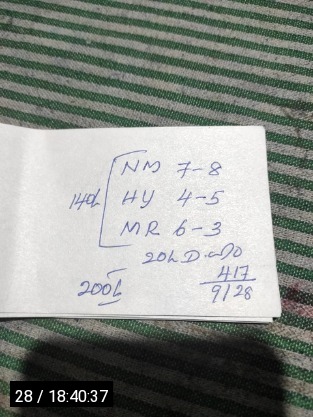 NM 7-8
140L HY 4-5
MR 6-3
20L
417
200L 9128
28 / 18:40:37